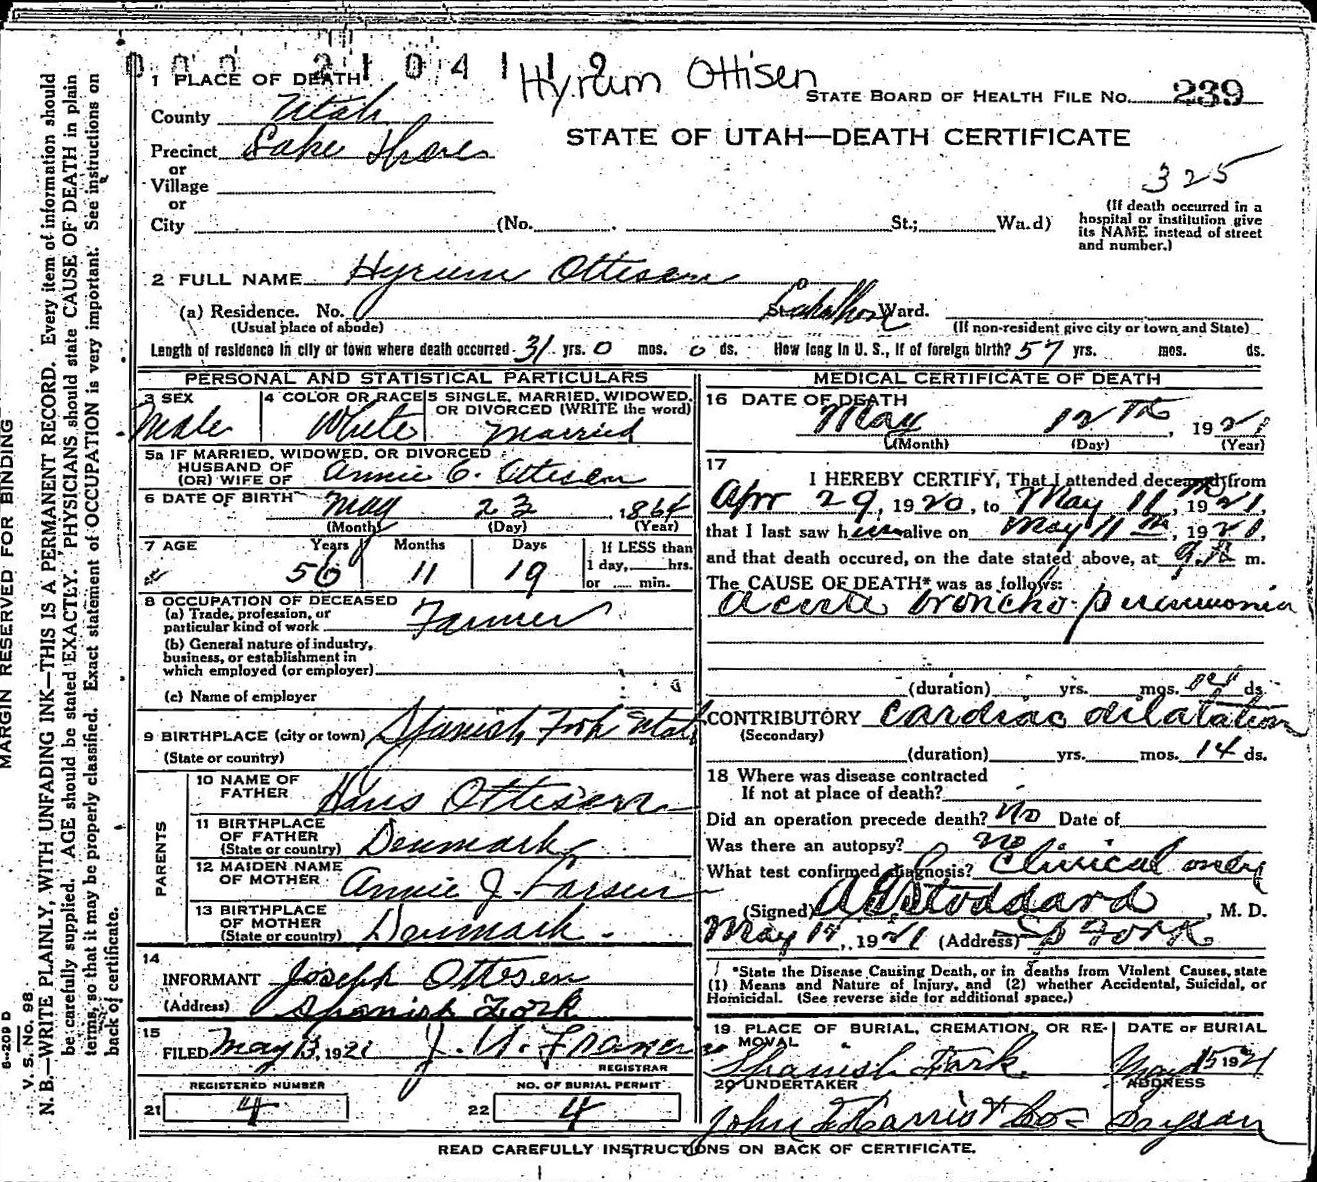 000 21041 19
Hyrum Ottisen
STATE BOARD OF HEALTH FILE NO. 239
STATE OF UTAH—DEATH CERTIFICATE
325
(If death occurred in a hospital or institution give its NAME instead of street and number.)
1 PLACE OF DEATH
County Utah
Precinct Lake Shore
or
Village
or
City (No. St.; Wa.d)
2 FULL NAME Hyrum Ottesen
(a) Residence. No. St. Lake Shore Ward.
(Usual place of abode) (If non-resident give city or town and State)
Length of residence in city or town where death occurred 31 yrs. 0 mos. 0 ds. How long in U. S., if of foreign birth? 57 yrs. mos. ds.
PERSONAL AND STATISTICAL PARTICULARS
3 SEX 4 COLOR OR RACE 5 SINGLE, MARRIED, WIDOWED, OR DIVORCED (WRITE the word)
Male White Married
5a IF MARRIED, WIDOWED, OR DIVORCED
HUSBAND OF
(OR) WIFE OF Annie C. Ottesen
6 DATE OF BIRTH May 23 1864
(Month) (Day) (Year)
7 AGE Years Months Days If LESS than
1 day, hrs.
or min.
56 11 19
8 OCCUPATION OF DECEASED
(a) Trade, profession, or
particular kind of work Farmer
(b) General nature of industry,
business, or establishment in
which employed (or employer)
(c) Name of employer
9 BIRTHPLACE (city or town) Spanish Fork Utah
(State or country)
PARENTS
10 NAME OF
FATHER Hans Ottesen
11 BIRTHPLACE
OF FATHER
(State or country) Denmark
12 MAIDEN NAME
OF MOTHER Annie J. Larsen
13 BIRTHPLACE
OF MOTHER
(State or country) Denmark.
14
INFORMANT Joseph Ottesen
(Address) Spanish Fork
15
FILED May 13, 1921
REGISTRAR
REGISTERED NUMBER NO. OF BURIAL PERMIT
21 4 22 4
MEDICAL CERTIFICATE OF DEATH
16 DATE OF DEATH
May 12TH, 1921
(Month) (Day) (Year)
17
I HEREBY CERTIFY, That I attended deceased from
Apr 29, 1920, to May 11th, 1921,
that I last saw him alive on May 11th, 1921,
and that death occured, on the date stated above, at 9 A m.
The CAUSE OF DEATH* was as follows:
Acute broncho-pneumonia
(duration) yrs. mos. 14 ds.
CONTRIBUTORY Cardiac dilatation
(Secondary)
(duration) yrs. mos. 14 ds.
18 Where was disease contracted
If not at place of death?
Did an operation precede death? No Date of
Was there an autopsy? no
What test confirmed diagnosis? Clinical only
(Signed) Stoddard, M. D.
May 1921 (Address) Sp Fork
*State the Disease Causing Death, or in deaths from Violent Causes, state
(1) Means and Nature of Injury, and (2) whether Accidental, Suicidal, or
Homicidal. (See reverse side for additional space.)
19 PLACE OF BURIAL, CREMATION, OR RE- DATE OF BURIAL
MOVAL
Spanish Fork May 15 1921
20 UNDERTAKER ADDRESS
John Harris & Co Payson
READ CAREFULLY INSTRUCTIONS ON BACK OF CERTIFICATE.
MARGIN RESERVED FOR BINDING
V. S. No. 98
N. B.—WRITE PLAINLY, WITH UNFADING INK—THIS IS A PERMANENT RECORD. Every item of information should
be carefully supplied. AGE should be stated EXACTLY. PHYSICIANS should state CAUSE OF DEATH in plain
terms, so that it may be properly classified. Exact statement of OCCUPATION is very important. See instructions on
back of certificate.